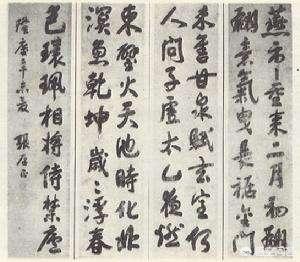 燕市重來二月初翩
翩意氣曳長裾金門
未售甘泉賦玄室何
人問子虛太乙夜燃
東壁火天池時化北
溟魚乾坤歲〻浮春
色環珮相將侍禁廬
隆慶辛未夏 張居正